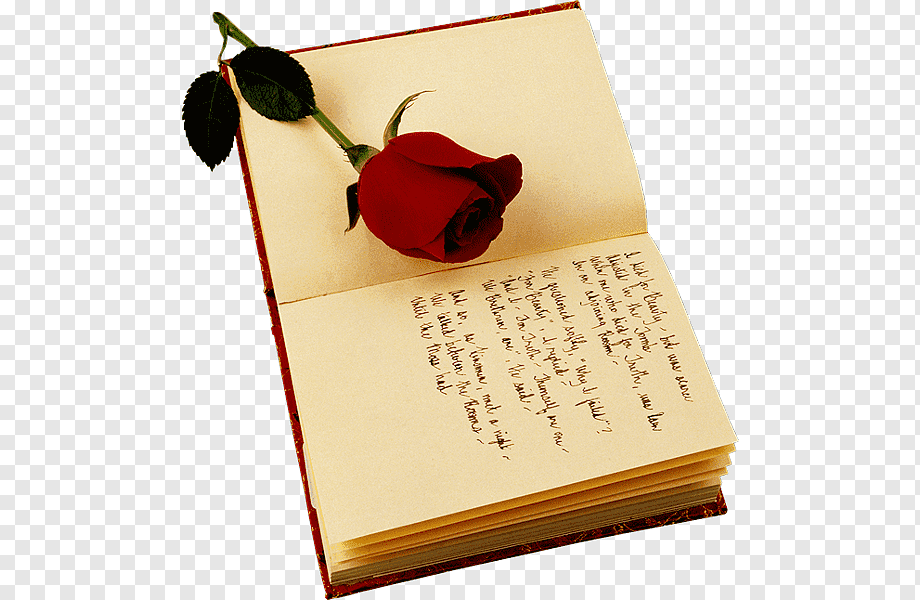 I died for Beauty – but was scarce
Adjusted in the Tomb
When one who died for Truth, was lain
In an adjoining Room –
He questioned softly, "Why I failed"?
"For Beauty", I replied –
"And I – For Truth – Themself are one –
We Brethren, are", He said –
And so, as Kinsmen, met a night –
We talked between the Rooms –
Until the Moss had